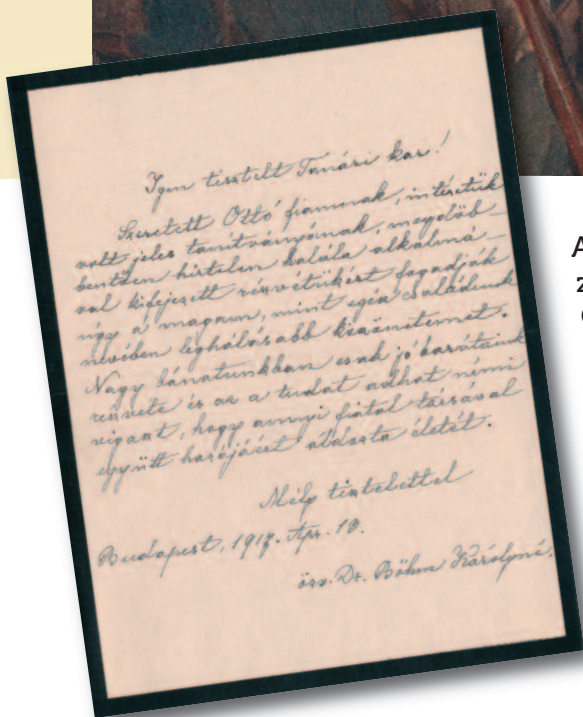 Igen tisztelt Tanári kar!
Szeretett Ottó fiamnak, intézetük
volt jeles tanítványának, megdöb-
bentően hirtelen halála alkalmá-
val kifejezett részvétükért fogadják
úgy a magam, mint egész családunk
nevében leghálásabb köszönetemet.
Nagy bánatunkban csak jó barátaink
részvéte és az a tudat adhat némi
vigaszt, hogy annyi fiatal társával
együtt hazájáért áldozta életét.
Mély tisztelettel
Budapest, 1917. Apr. 10.
özv. Dr. Böhm Károlyné.
A
z